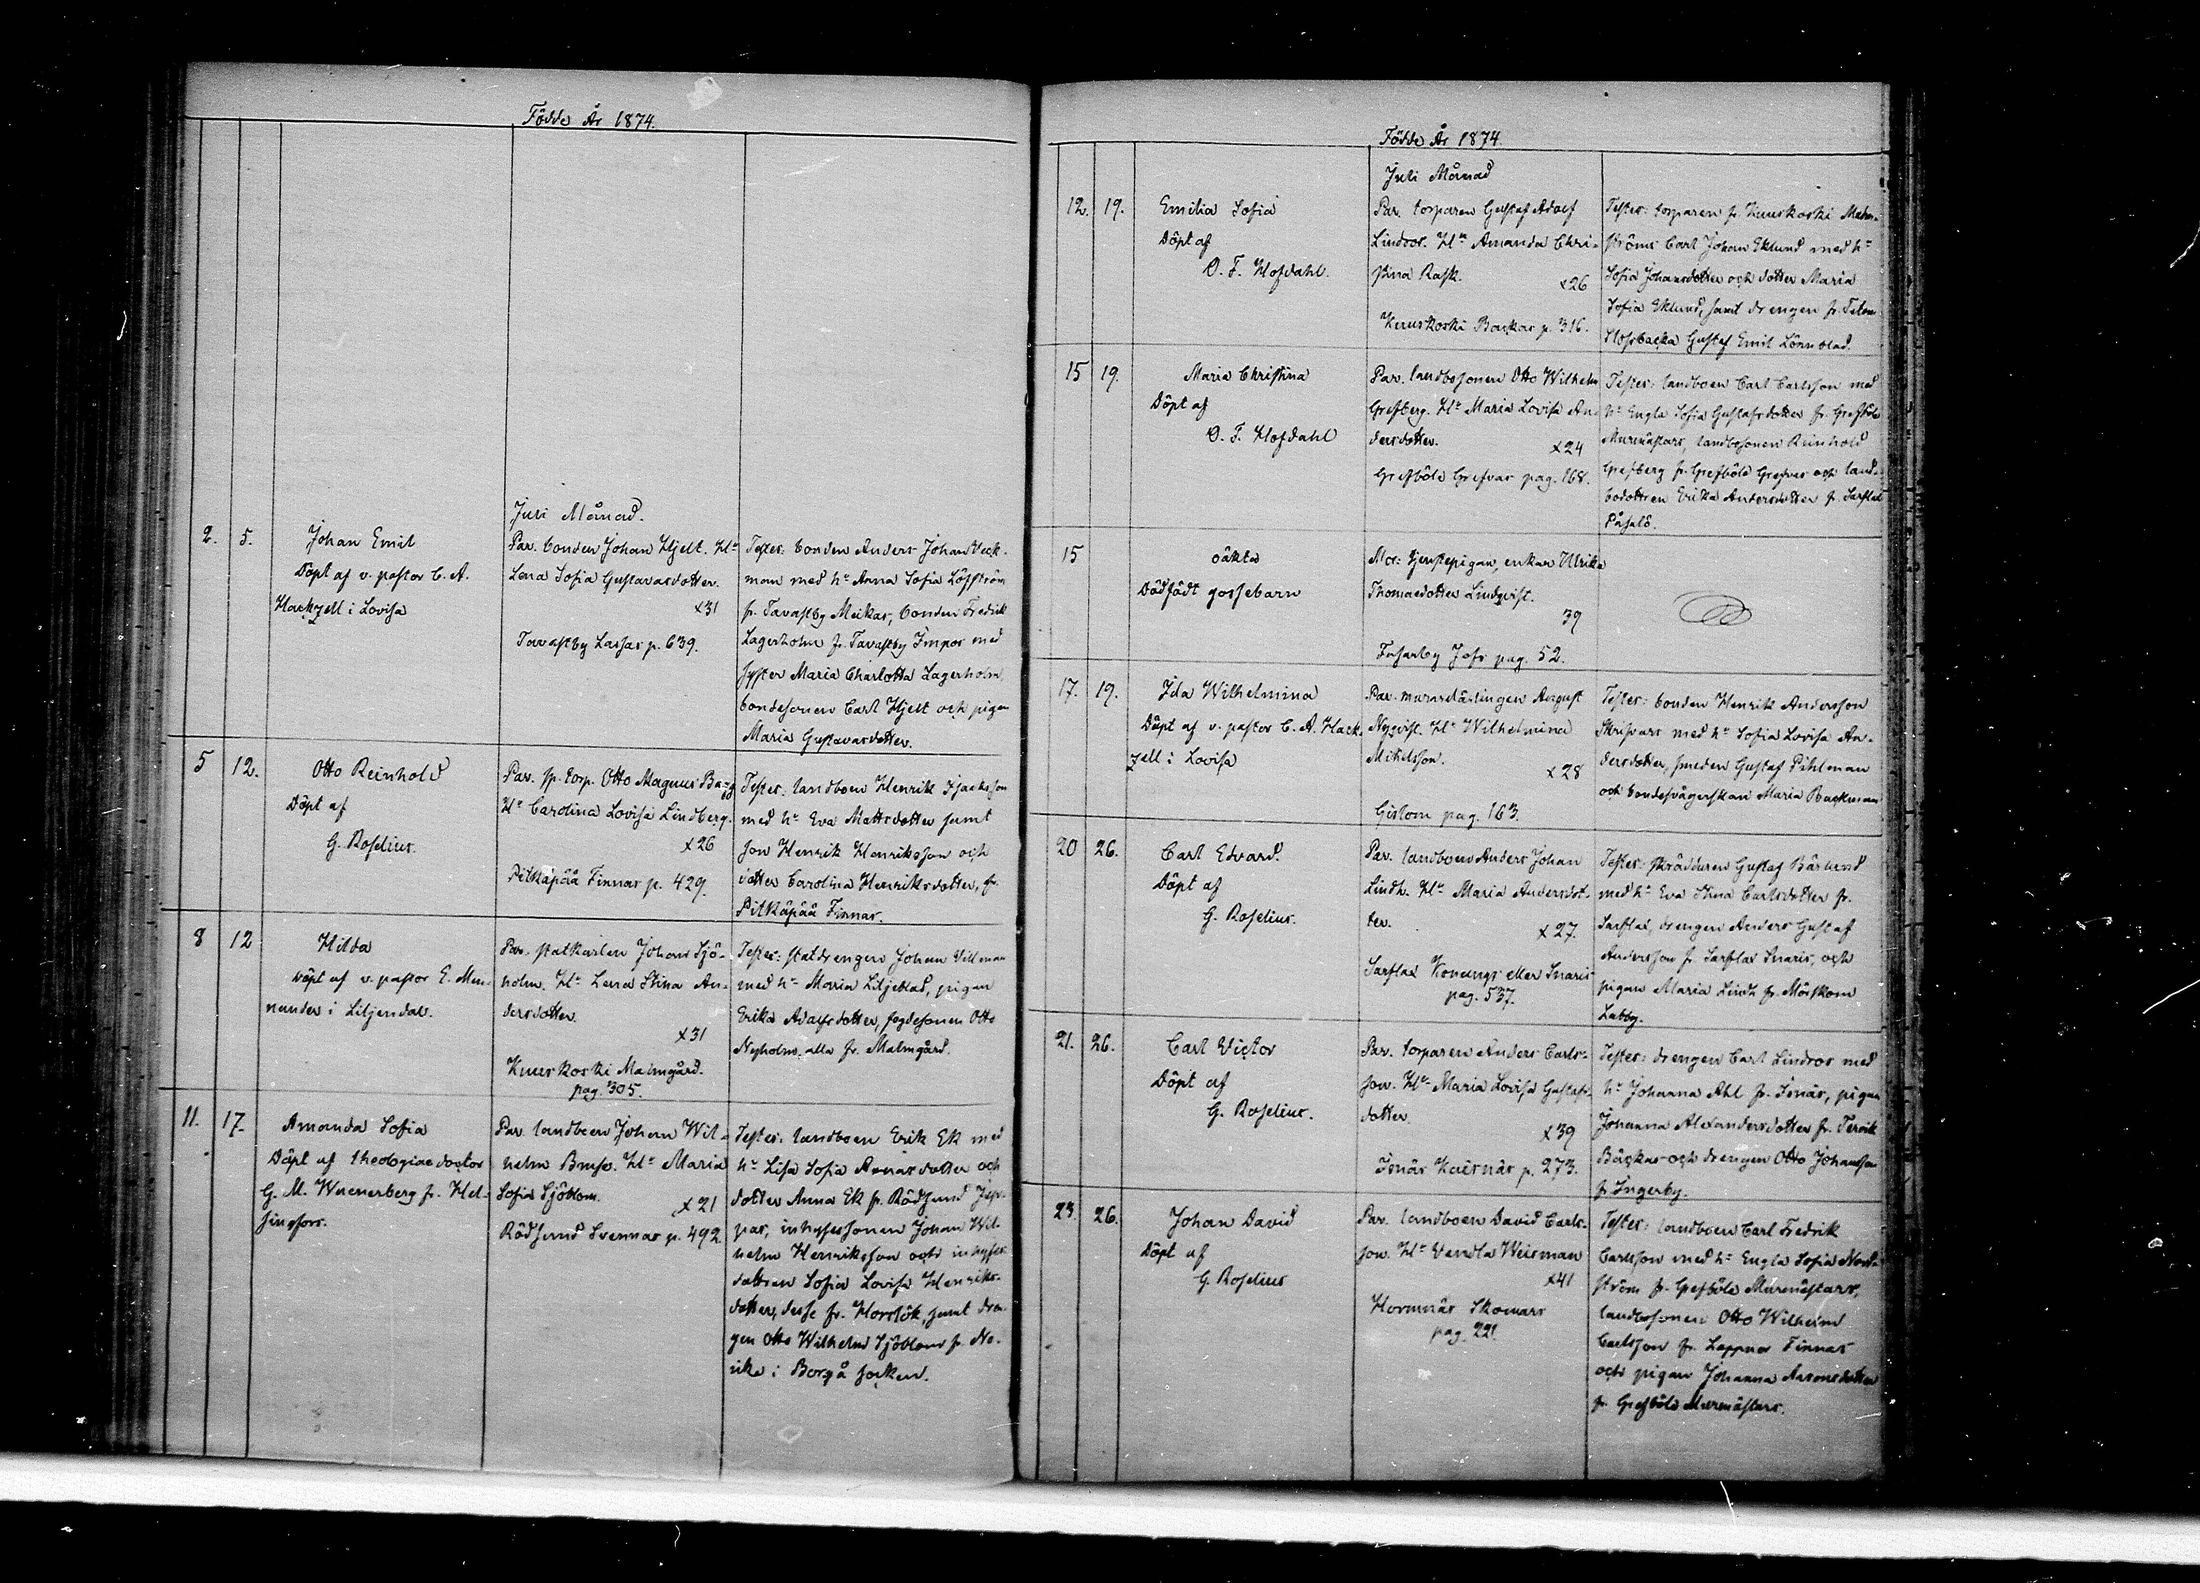 Födde År 1874.
Juli Månad.
2. 5.
Johan Emil
Döpt af v. pastor C. A.
Hackzell i Lovisa
Par. bonden Johan Hjelt. H:u
Lena Sofia Gustavasdotter.
x31
Tavastby Lassas p. 639.
Tester: bonden Anders Johan Beck-
man med h:u Anna Sofia Löfström
fr. Tavastby Meikas, bonden Fredrik
Lagerholm fr. Tavastby Impos med
syster Maria Charlotta Lagerholm,
bondesonen Carl Hjelt och pigan
Maria Gustavasdotter.
5 12.
Otto Reinhold
Döpt af
G. Roselius.
Par. sp. torp. Otto Magnus
H:u Carolina Lovisa Lindberg.
x26
Pitkäpää Finnas p. 429.
Tester: landboen Henrik Isaaksson
med h:u Eva Mattsdotter samt
son Henrik Henriksson och
dotter Carolina Henriksdotter, fr.
Pitkäpää Finnas.
8 12
Hilda
Döpt af v. pastor E. Men-
nander i Liljendal.
Par. statkarlen Johan Sjö-
holm. H:u Lena Stina An-
dersdotter.
x31
Kuuskoski Malmgård.
pag. 305.
Tester: statdrengen Johan Sillman
med h:u Maria Liljeblad, pigan
Erika Adolfsdotter, fogdesonen Otto
Nyholm, alla fr. Malmgård.
11. 17.
Amanda Sofia
Döpt af theologiae doctor
G. M. Waenerberg fr. Hel-
singfors.
Par. landboen Johan Wil-
helm Buss. H:u Maria
Sofia Sjöblom.
x21
Rödsund Svennas p. 492.
Tester: landboen Erik Ek med
h:u Lisa Sofia dotter och
dotter Anna Ek fr. Rödsund Jep-
pas, inhysessonen Johan Wil-
helm Henriksson och inhyses-
dottren Sofia Lovisa Henriks-
dotter, desse fr. Horslök, samt dren-
gen Otto Wilhelm Sjöblom fr. Ne-
rike i Borgå socken.
Födde År 1874.
Juli Månad
12. 19.
Emilia Sofia
Döpt af
O. F. Hofdahl.
Par. torparen Gustaf Adolf
Lindros. H:u Amanda Chri-
stina Rask.
x26
Kuuskoski Backas p. 316.
Tester: torparen fr. Kuuskoski Malm-
ströms Carl Johan Eklund med h:u
Sofia Johansdotter och dotter Maria
Sofia Eklund, samt drengen fr.
Gustaf Emil Lönnblad.
15 19.
Maria Christina
Döpt af
O. F. Hofdahl
Par. landbosonen Otto Wilhelm
Grefberg. H:u Maria Lovisa An-
dersdotter.
x24
Grefböle Grefvas pag. 168.
Tester: landboen Carl Carlsson med
h:u Engla Sofia Gustafsdotter fr. Grefböle
Murmästars, landbosonen Reinhold
Grefberg fr. Grefböle Grefvas och land-
bodottren Erika Andersdotter fr. Sarflax
Påsalö.
15
oäkta
Dödfödt gossebarn
Mor: tjenstepigan, enkan Ulrika
Thomasdotter Lindqvist.
39
Fasarby Jofs pag. 52.
17. 19.
Ida Wilhelmina
Döpt af v. pastor C. A. Hack-
zell i Lovisa
Par. murarelärlingen August
Nyqvist. H:u Wilhelmina
Mickelsson.
x28
Gislom pag. 163.
Tester: bonden Henrik Andersson
Skrifvars med h:u Sofia Lovisa An-
dersdotter, smeden Gustaf Pihlman
och bondesvägerskan Maria Backman
20 26.
Carl Edvard.
Döpt af
G. Roselius.
Par. landboen Anders Johan
Lindh. H:u Maria Andersdot-
ter.
x27.
Sarflax Konungs eller Snaris
pag. 537.
Tester: skräddaren Gustaf Bäslund
med h:u Eva Stina Carlsdotter fr.
Sarflax, drengen Anders Gustaf
Andersson fr. Sarflax Snaris, och
pigan Maria Lindh fr. Mörskom
Labby.
21. 26.
Carl Victor
Döpt af
G. Roselius.
Par. torparen Anders Carls-
son. H:u Maria Lovisa Gustafs-
dotter.
x39
Isnäs Kuirnäs p. 273.
Tester: drengen Carl Lindros med
h:u Johanna Ahl fr. Isnäs, pigan
Johanna Alexandersdotter fr. Tervik
Bäckas och drengen Otto Johansson
fr. Ingerby.
23. 26.
Johan David
Döpt af
G. Roselius
Par. landboen David Carls-
son. H:u Vendla Weirman
x41
Hormnäs Skomars
pag. 221.
Tester: landboen Carl Fredrik
Carlsson med h:u Engla Sofia Nord-
ström fr. Grefböle Murmästars,
landbosonen Otto Wilhelm
Carlsson fr. Lappnor Finnas
och pigan Johanna Aronsdotter
fr. Grefböle Murmästars.